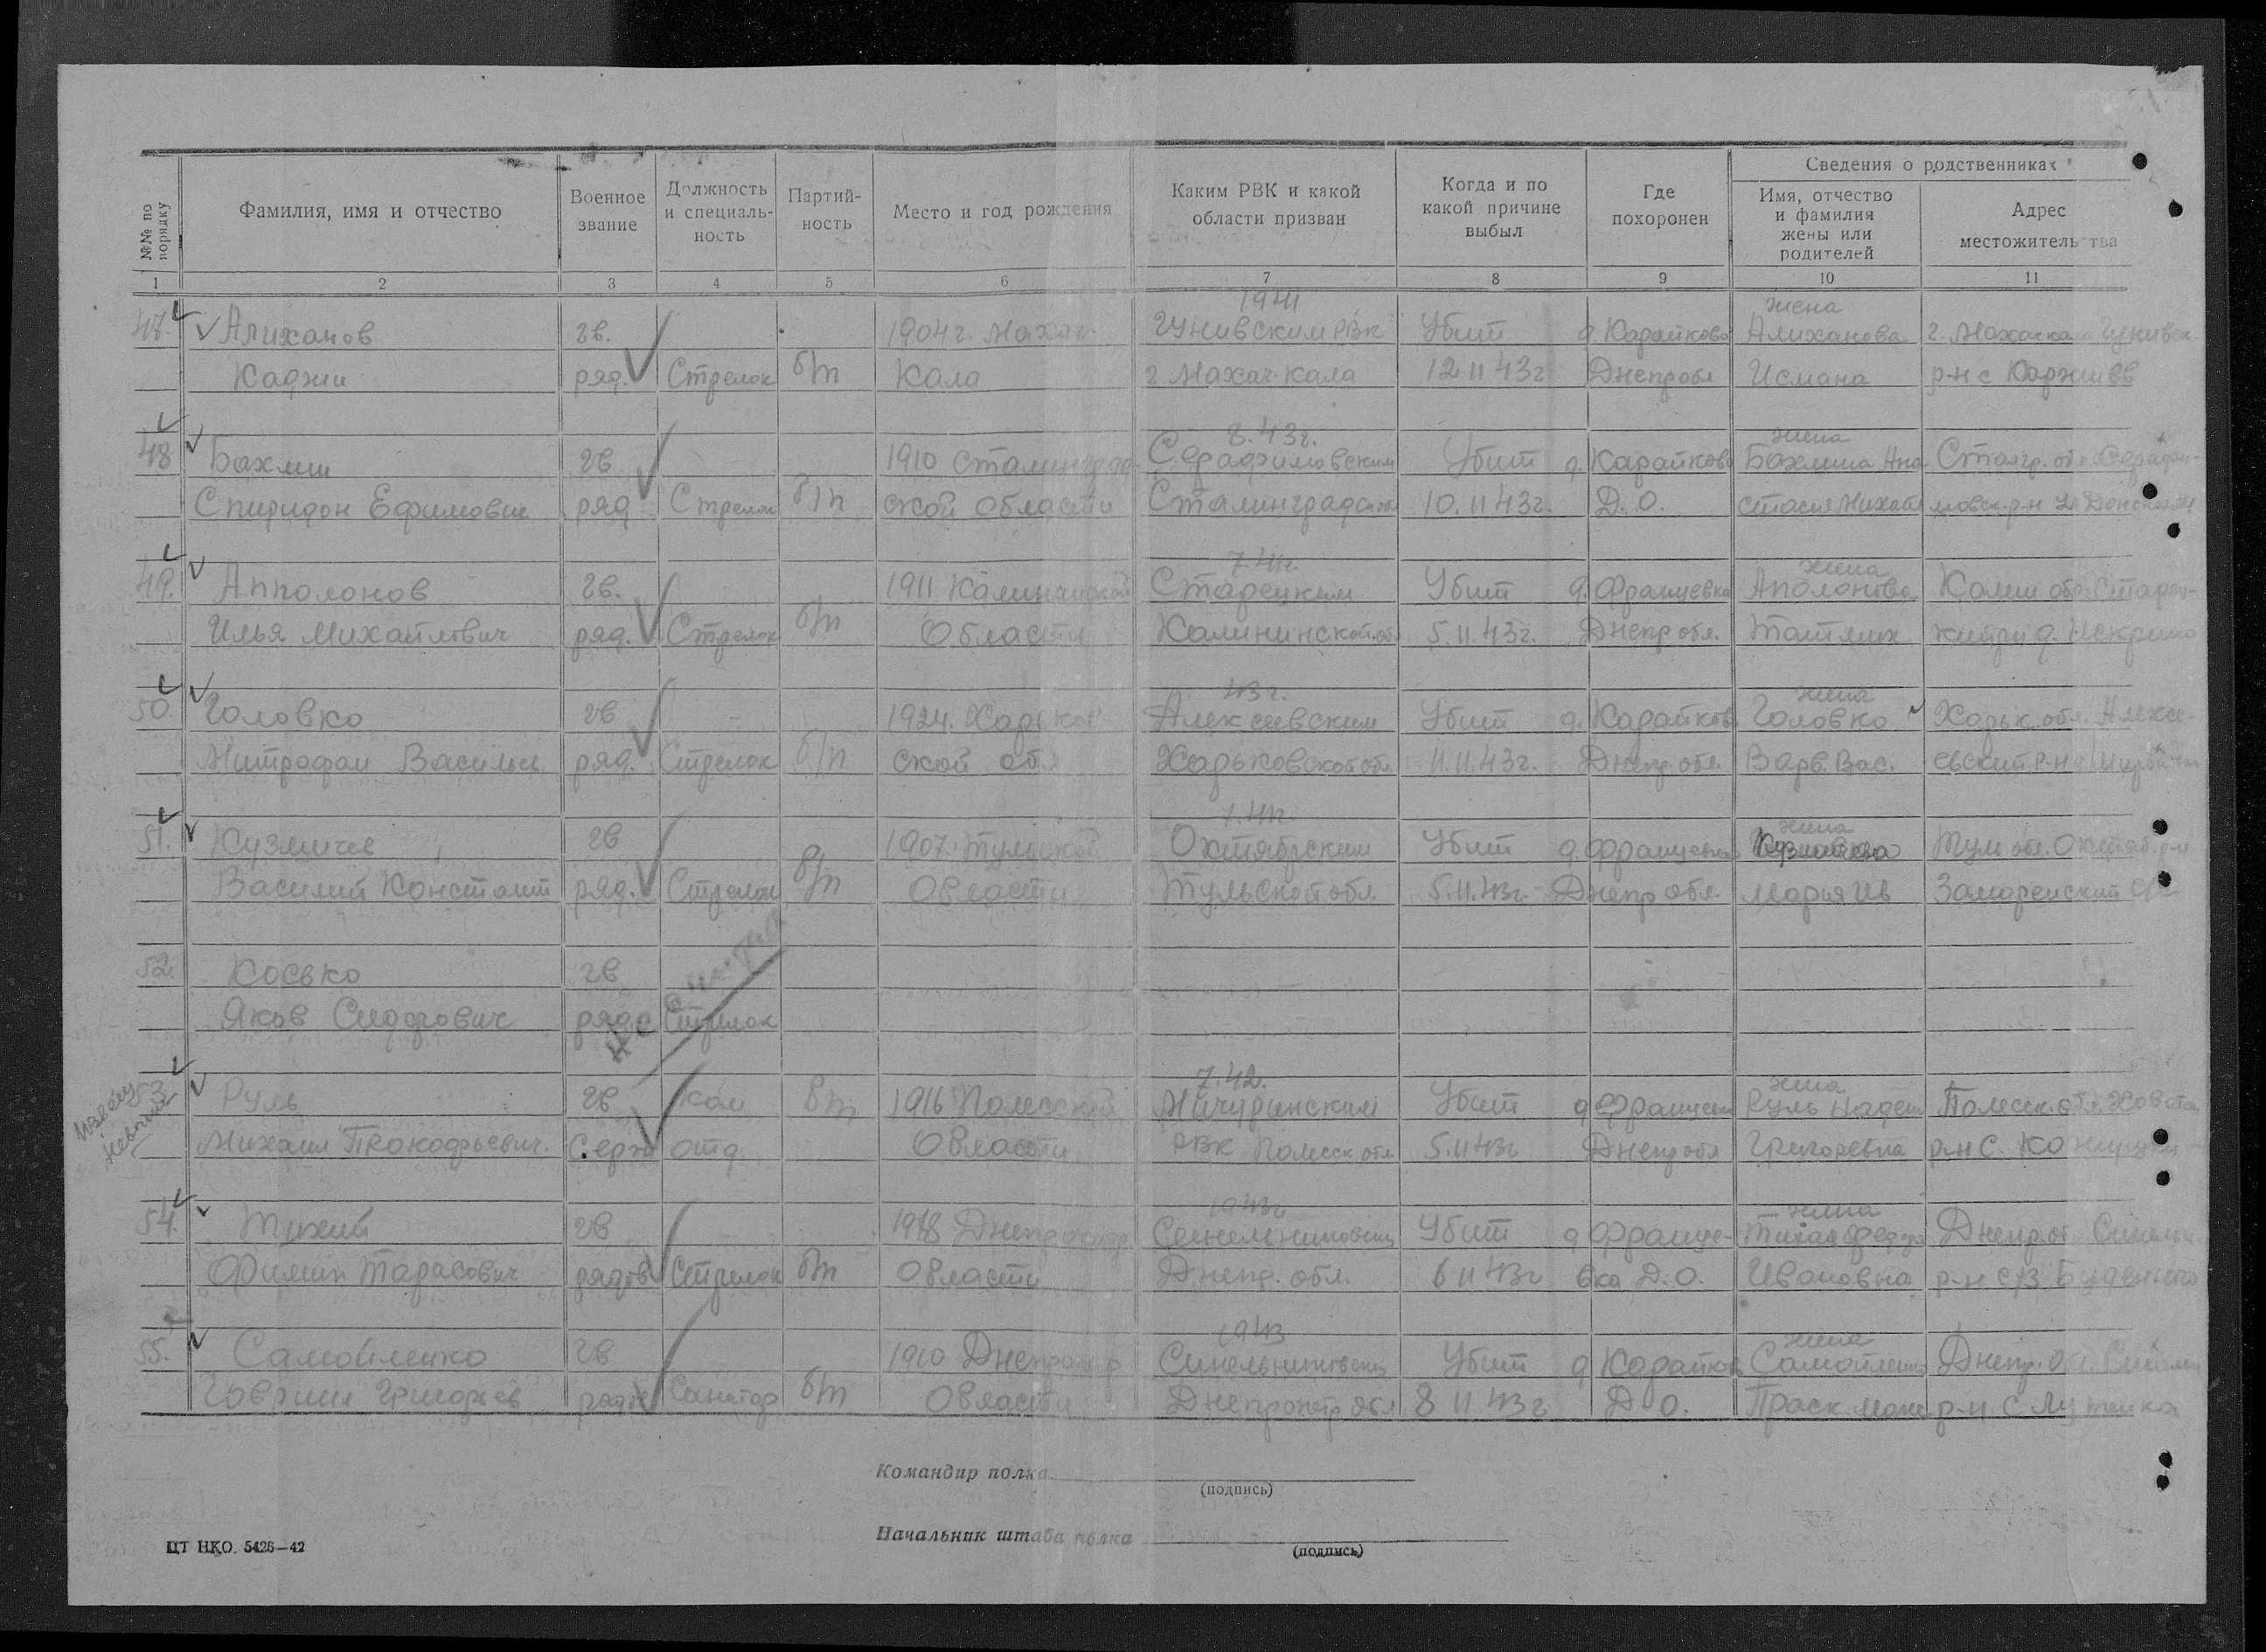 №№ по порядку
Фамилия, имя и отчество
Военное звание
Должность и специаль- ность
Партий- ность
Место и год рождения
Каким РВК и какой области призван
Когда и по какой причине выбыл
Где похоронен
Сведения о родственниках
Имя, отчество и фамилия жены или родителей
Адрес местожительства
1 2 3 4 5 6 7 8 9 10 11
1941 жена
47. Алиханов гв. 1904г. Махач- Гунивским РВК Убит д. Карайково Алиханова г. Махачкала Гунивск
Каджи ряд. Стрелок б/п Кала г. Махач-Кала 12 11 43г Днепр обл Исмана р-н с
8.43г. жена
48 Бахмин гв 1910 Сталинград- Серафимовским Убит д. Карайково Бахмина Ана Сталгр. обл. Серафи-
Спиридон Ефимович ряд Стрелок б/п ской области Сталинградской 10.11 43г. Д.О. стасия Михайл мовск. р-н
7.41г. жена
49. Апполонов гв. 1911 Калининской Старецким Убит д. Францевка Аполонова Калин обл Стариц-
Илья Михайлович ряд. Стрелок б/п Области Калининской об. 5.11.43г. Днепр обл. д.
43г. жена
50. Головко гв 1924. Харьков- Алексеевским Убит д. Карайково Головко Харьк. обл. Алексе-
Митрофан Васильев ряд. Стрелок б/п ской обл Харьковской обл. 11.11.43г. Днепр. обл. Варв. Вас. евский р-н
7.41г. жена
51. Кузмичев гв 1907 Тульской Октябрским Убит д. Францевка Кузмичева Тул. обл. Октяб. р-н
Василий Констант ряд. Стрелок б/п Области Тульской обл. 5.11.43г. Днепр обл. Мария Ив с/с
52. Коськo гв
Яков Сидорович ряд. Стрелок
7.42. жена
53. Руль гв Ком б/п 1916 Полесской Мичуринским Убит д Францевка Руль Надеж Полесск. обл.
Михаил Прокофьевич. Серж отд. Области РВК Полесск обл 5.11 43г Днепр обл Григоревна р-н с.
1943г жена
54. Тихий гв 1918 Днепропетр Синельниковским Убит д Францe- Тихая Федора Днепр. об. Синельн.
Филип Тарасович рядов Стрелок б/п Области Днепр. обл. 6 11 43г вка Д.О. Ивановна р-н с/з Буденого
1943 жена
55. Самойленко гв 1910 Днепропетр Синельниковским Убит д Карайков Самойленко Днепр. обл. Синельн
Гаврил Григорьев рядов Санитар б/п Области Днепропетр обл 8 11 43г Д О. Праск. р-н. с
Командир полка
(подпись)
Начальник штаба полка
(подпись)
ЦТ НКО 5426—42